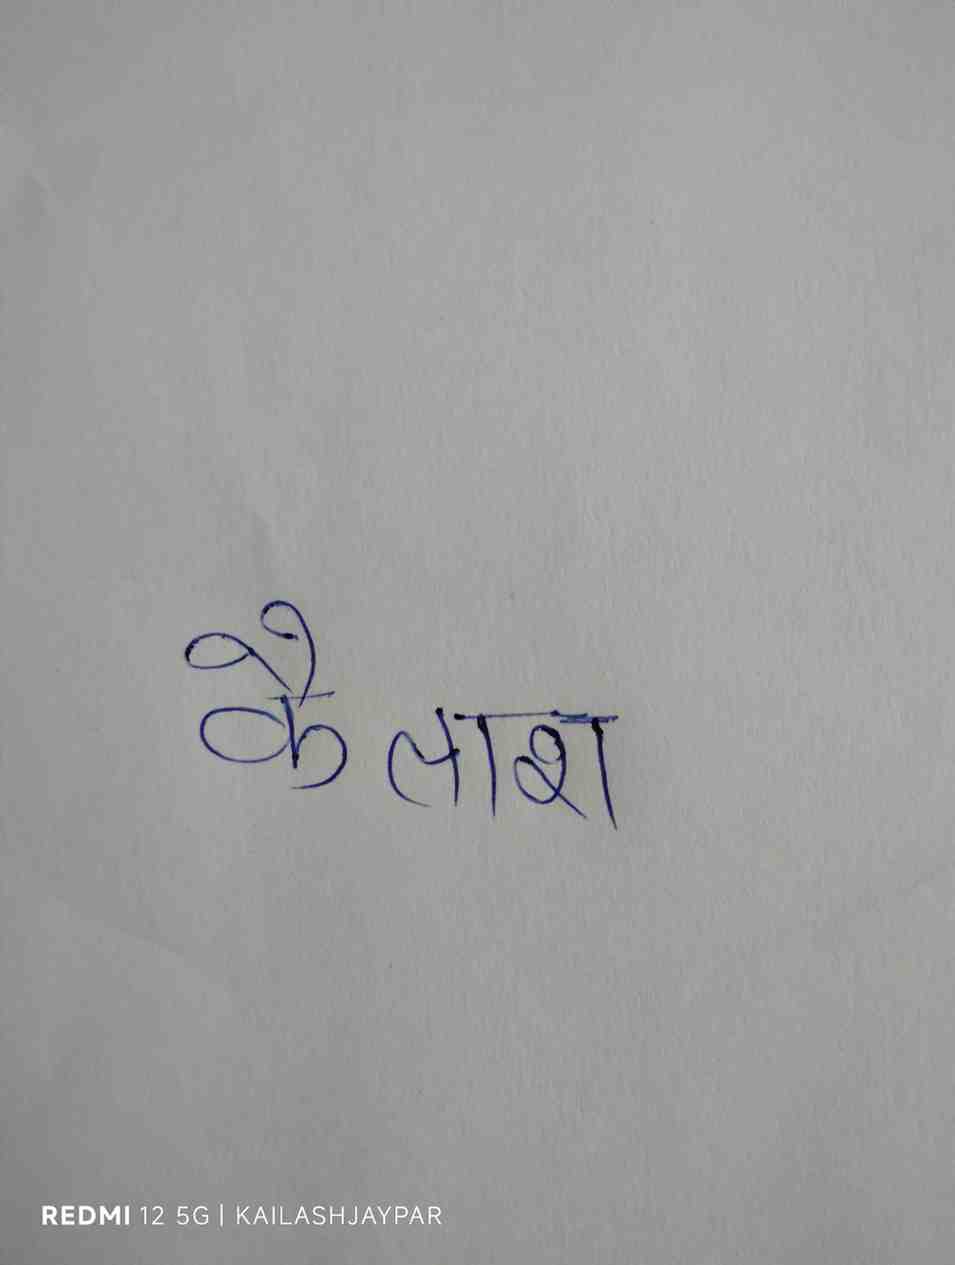 कैलाश
REDMI 12 5G | KAILASHJAYPAR